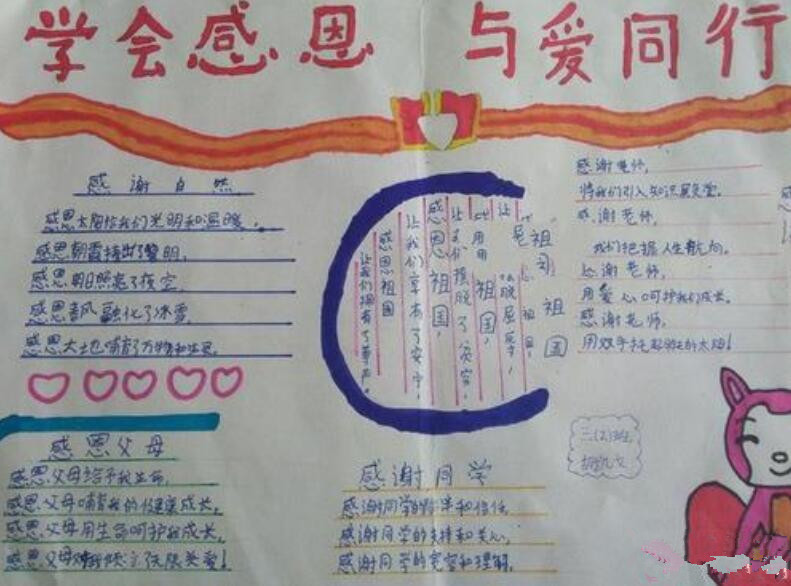 学会感恩 与爱同行
感谢自然
感恩太阳给我们光明和温暖，
感恩朝霞捧出了黎明，
感恩照亮了夜空，
感恩春风融化了冰雪，
感恩大地哺育了万物和生灵。
感恩父母
感恩父母给予我生命，
感恩父母哺育我们健康成长，
感恩父母用生命呵护我成长，
感恩父母倾注了无限关爱！
感恩祖国
让我们拥有了尊严。
让我们享有了安宁，
感恩祖国，
让我们摆脱了贫穷，
祖国，
摆脱屈辱，
祖国
感谢老师，
将我们引入知识殿堂。
感谢老师，
我们把握人生航向。
感谢老师，
用爱心呵护我们成长。
感谢老师，
用双手托起的太阳！
感谢同学
感谢同学的和信任，
感谢同学的支持和关心，
感谢同学的宽容和理解。
三(2)班